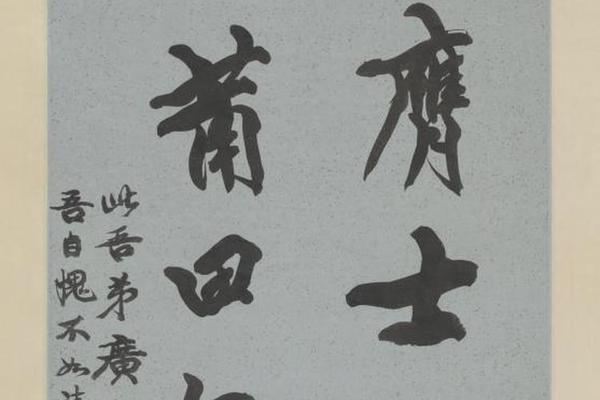 膺士
莆田
此吾弟廣
吾自愧不如